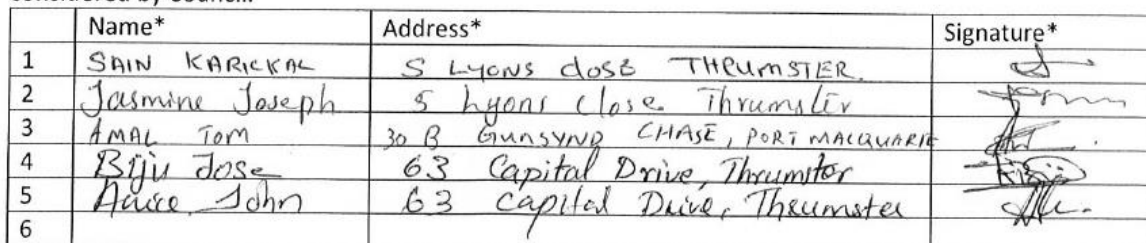 Name* Address* Signature*
1 SAIN KARICKAL 5 LYONS close THRUMSTER.
2 Jasmine Joseph 5 Lyons Close Thrumster
3 AMAL TOM 30 B GUNSYND CHASE, PORT MACQUARIE
4 Biju Jose 63 Capital Drive, Thrumster
5 John 63 Capital Drive, Thrumster
6